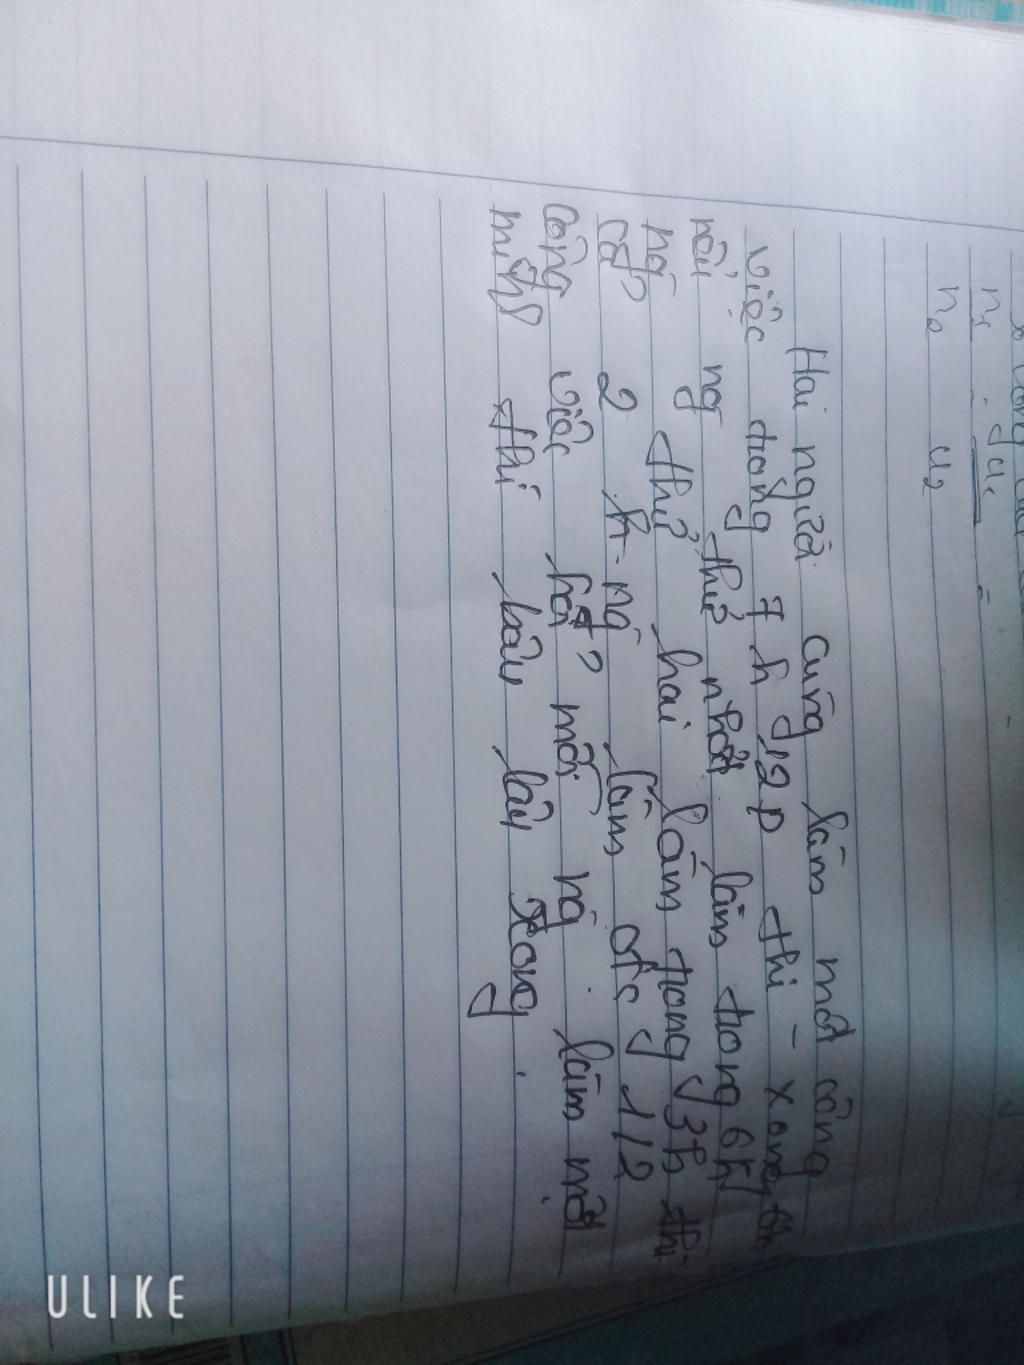 n₁ u₁ =
n₂ u₂
Hai người cùng làm một công
việc trong 7 h 12p thì - xong
nếu ng thứ nhất làm trong 6h
ng thứ hai làm trong 3h thì
cả 2 h. ng làm đc 1/2
công việc hỏi? mỗi ng làm một
mình thì bâu lâu xong.
ULIKE